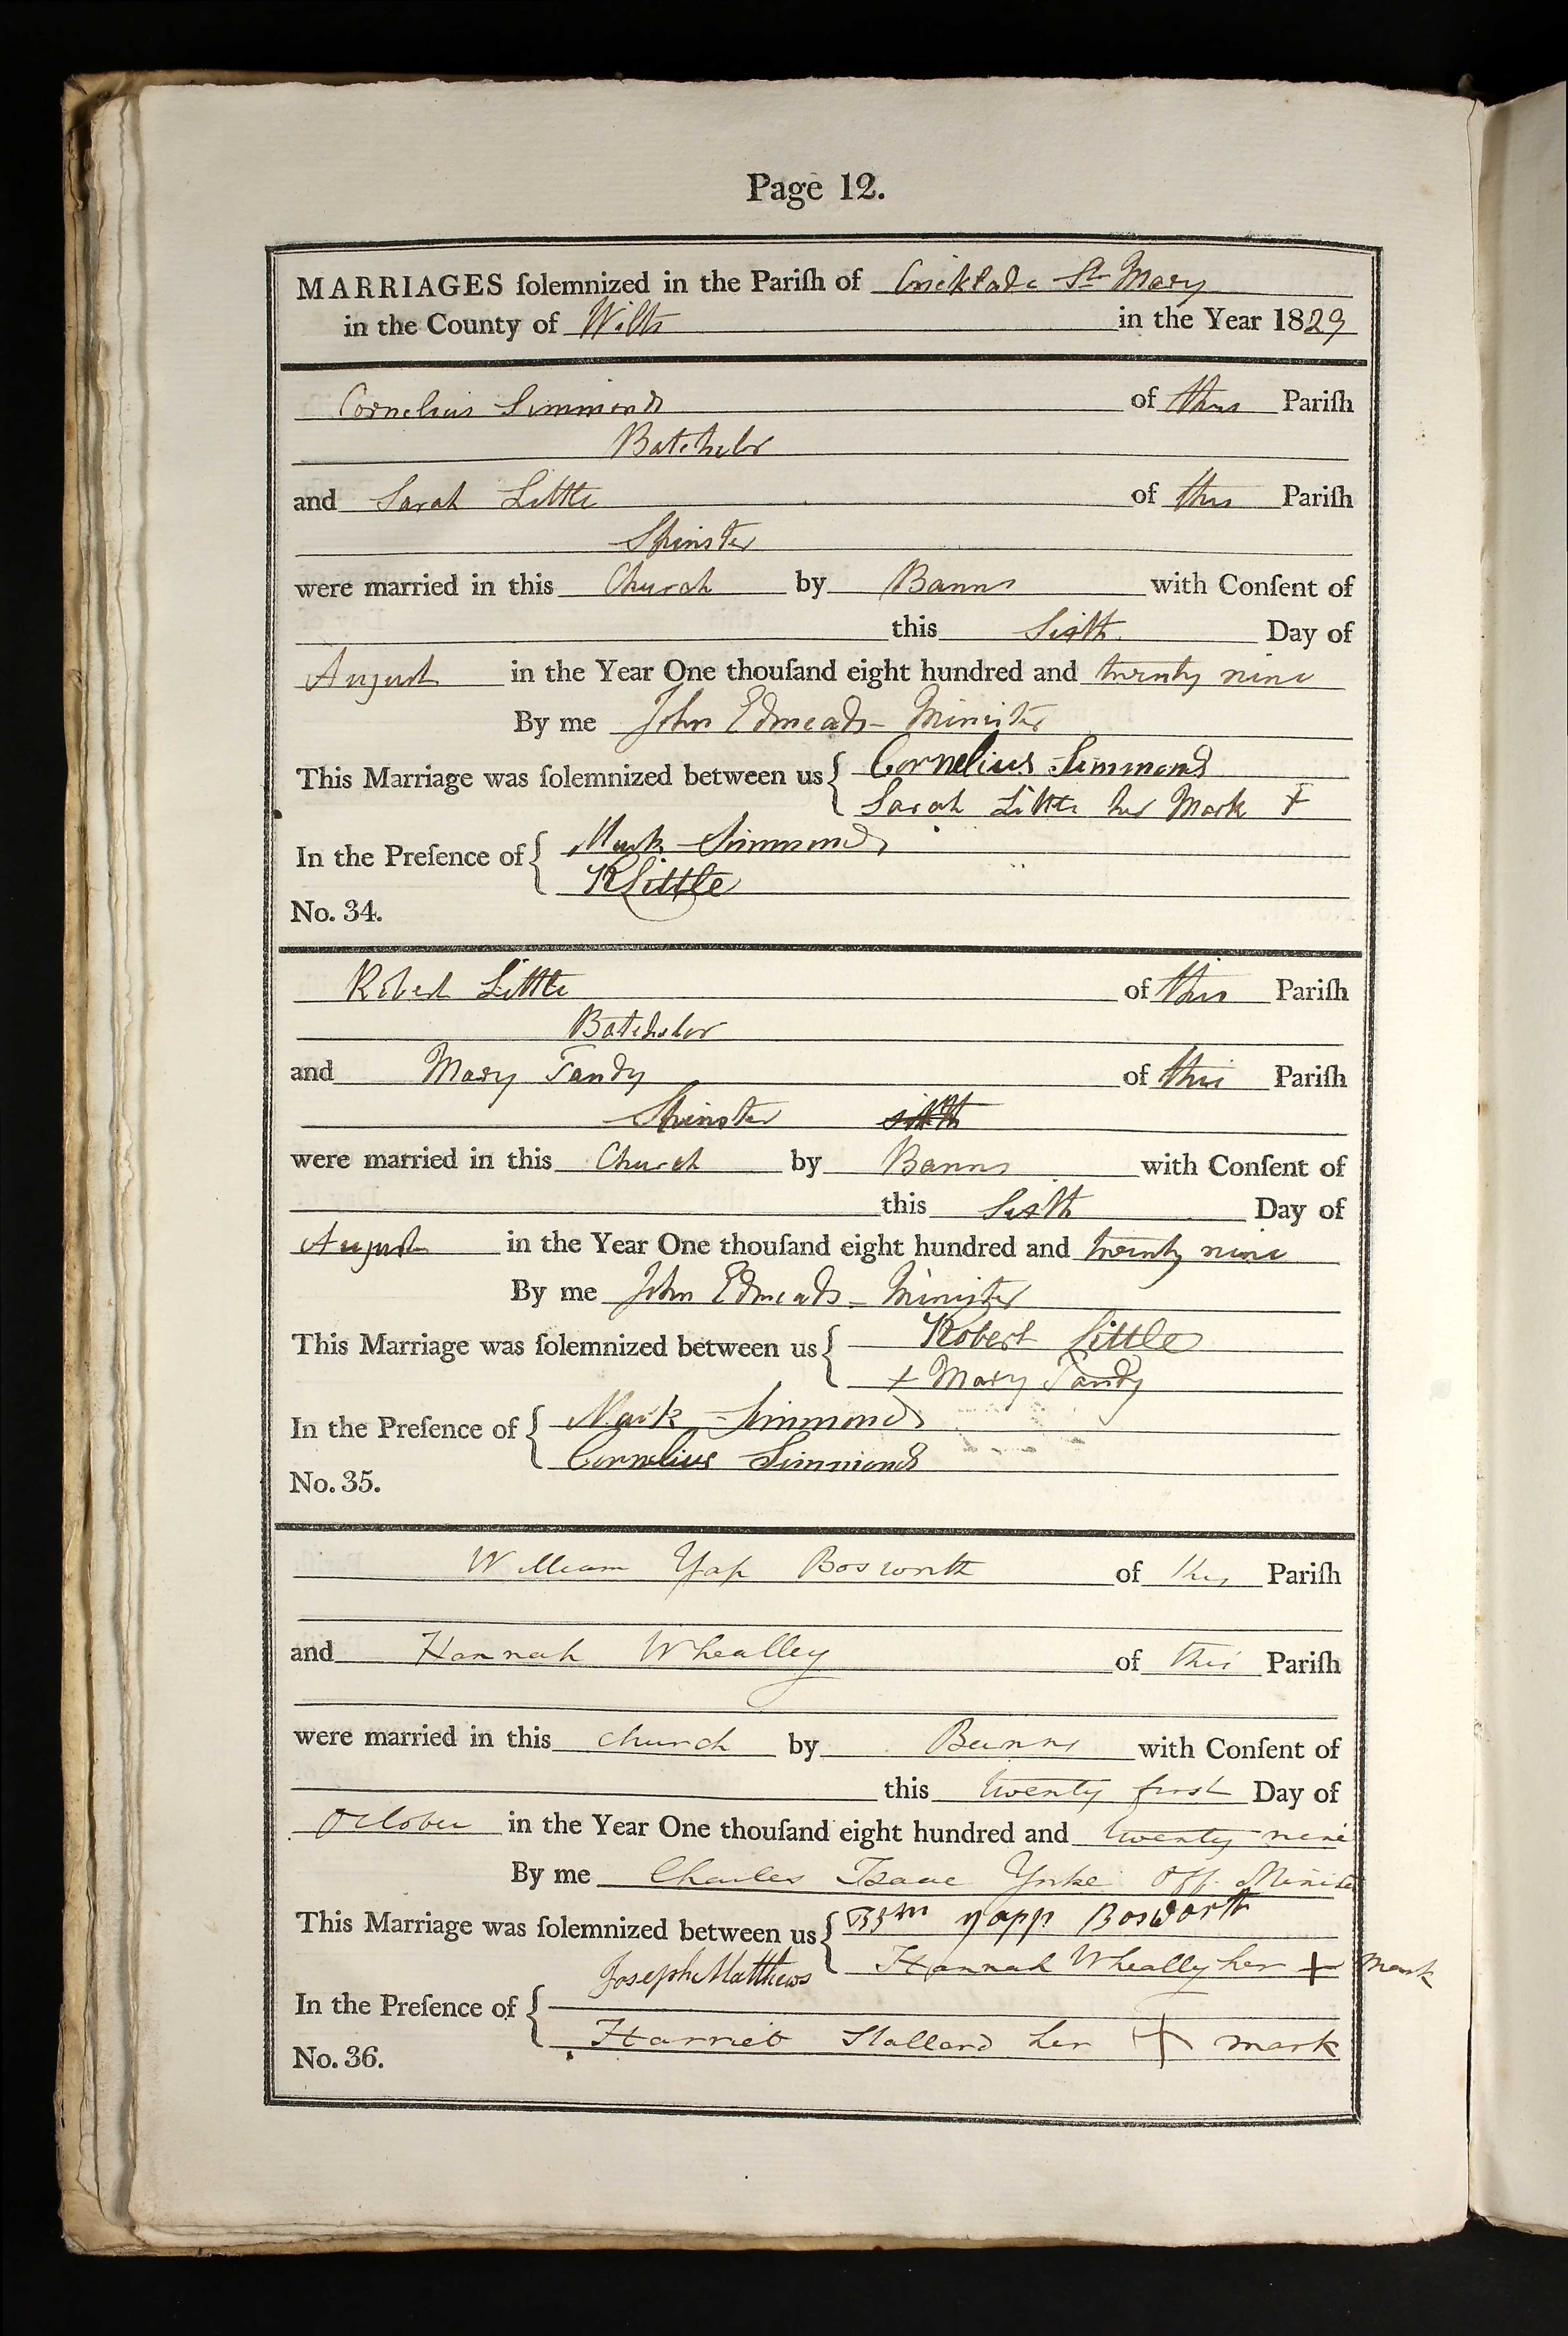 Page 12.
MARRIAGES ſolemnized in the Pariſh of Cricklade St Mary
in the County of Wilts in the Year 1829
Cornelius Simmonds of this Pariſh
Batchelor
and Sarah Little of this Pariſh
Spinster
were married in this Church by Banns with Conſent of
this Sixth Day of
August in the Year One thouſand eight hundred and twenty nine
By me John Edmeads - Minister
This Marriage was ſolemnized between us { Cornelius Simmonds
Sarah Little her Mark +
In the Preſence of { Mark Simmonds
R Little
No. 34.
Robert Little of this Pariſh
Batchelor
and Mary Tandy of this Pariſh
Spinster sixth
were married in this Church by Banns with Conſent of
this Sixth Day of
August in the Year One thouſand eight hundred and twenty nine
By me John Edmeads - Minister
This Marriage was ſolemnized between us { Robert Little
+ Mary Tandy
In the Preſence of { Mark Simmonds
Cornelius Simmonds
No. 35.
William Yap Bosworth of this Pariſh
and Hannah Whealley of this Pariſh
were married in this church by Banns with Conſent of
this twenty first Day of
October in the Year One thouſand eight hundred and twenty nine
By me Charles Isaac Yorke Off. Minister
This Marriage was ſolemnized between us { yapp Bosworth
Hannah Wheally her + mark
Joseph Matthews
In the Preſence of {
Harriet Stallard her + mark
No. 36.